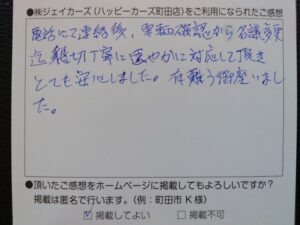 ●㈱ジェイカーズ(ハッピーカーズ町田店)をご利用になられたご感想
電話にて連絡後、車輌確認から名義変更
迄懇切丁寧に速やかに対応して頂き
とても安心しました。有難う御座いまし
た。
●頂いたご感想をホームページに掲載してもよろしいですか?
掲載は匿名で行います。(例:町田市K様)
☑掲載してよい □掲載不可